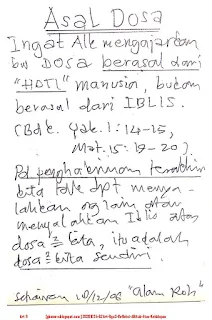 Asal Dosa
Ingat Alk mengajarkan
bw DOSA berasal dari
"HATI" manusia, bukan
berasal dari IBLIS.
(Bdk. Yak. 1:14-15,
Mat. 15:19-20).
Pd penghakiman terakhir
kita tdk dpt menya-
lahkan org lain atau
menyalahkan Iblis atas
dosa² kita, itu adalah
dosa² kita sendiri.
10/12/06 "Alam Roh"